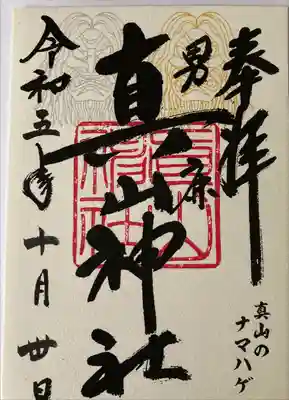 奉拝
男鹿
真山神社
令和五年十月廿日
真山の
ナマハゲ